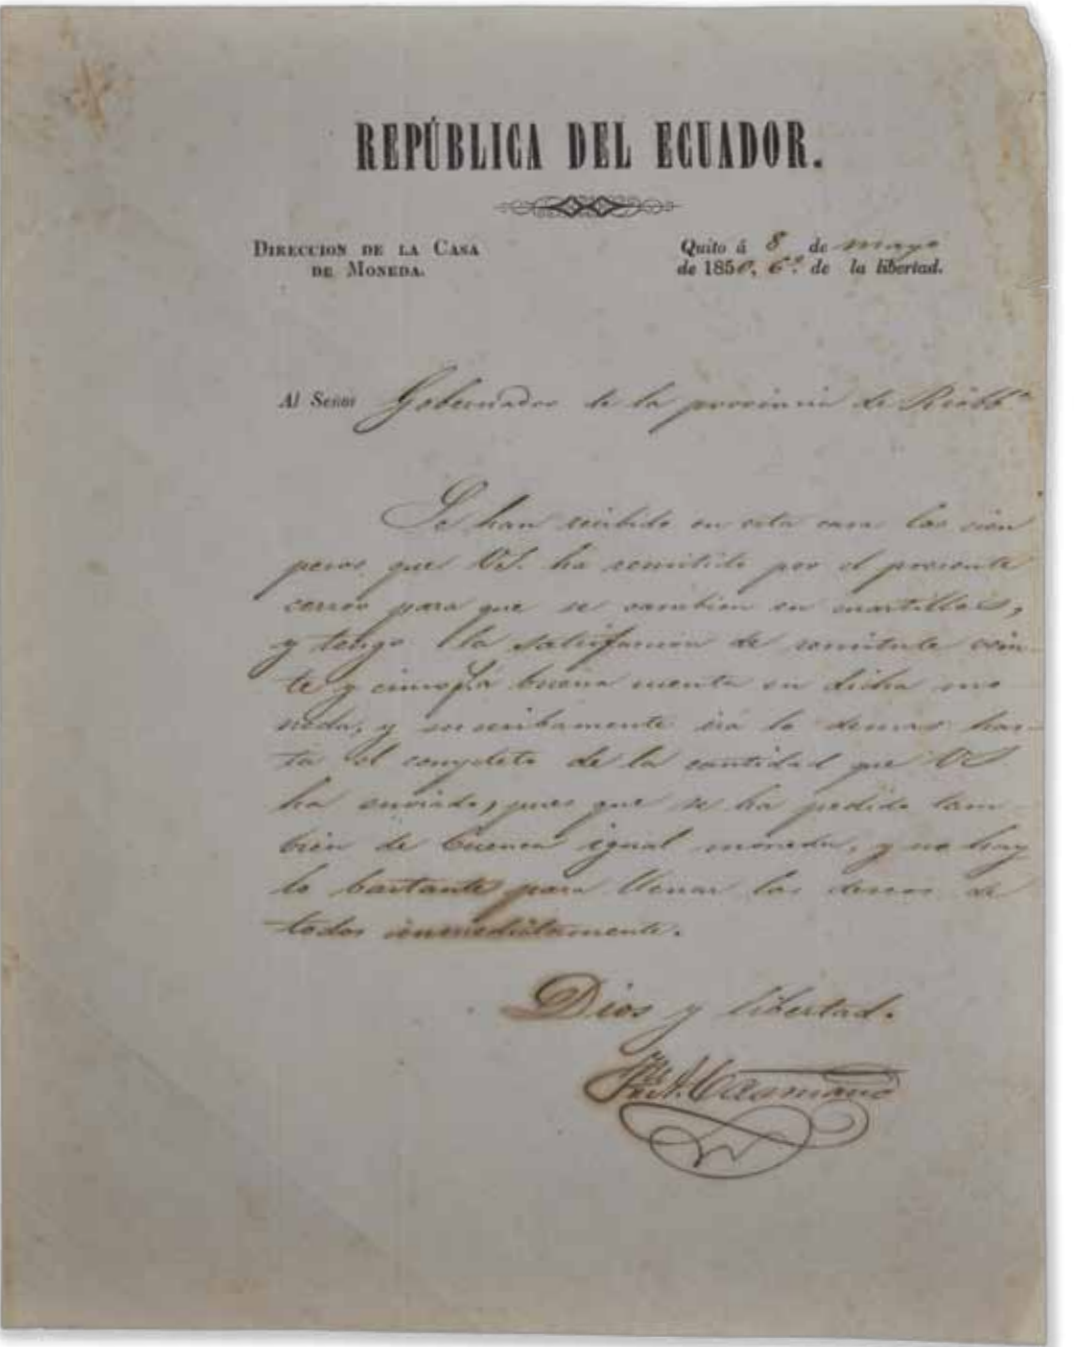 REPÚBLICA DEL ECUADOR.
DIRECCION DE LA CASA
DE MONEDA.
Quito á 8 de mayo
de 1850, 6º de la libertad.
Al Señor Gobernador de la provincia de Riobbª
Se han recibido en esta casa los cien
pesos que VS. ha remitido por el presente
correo para que se cambien en cuartillos,
y tengo la satisfaccion de remitirle vein-
te y cinco p.s á buena cuenta en dicha mo
neda, y sucesibamente irá lo demas has-
ta el completo de la cantidad que VS
ha enviado, pues que se ha pedido tam
bien de Cuenca igual moneda, y no hay
lo bastante para llenar los deseos de
todos inmediatamente.
Dios y libertad.